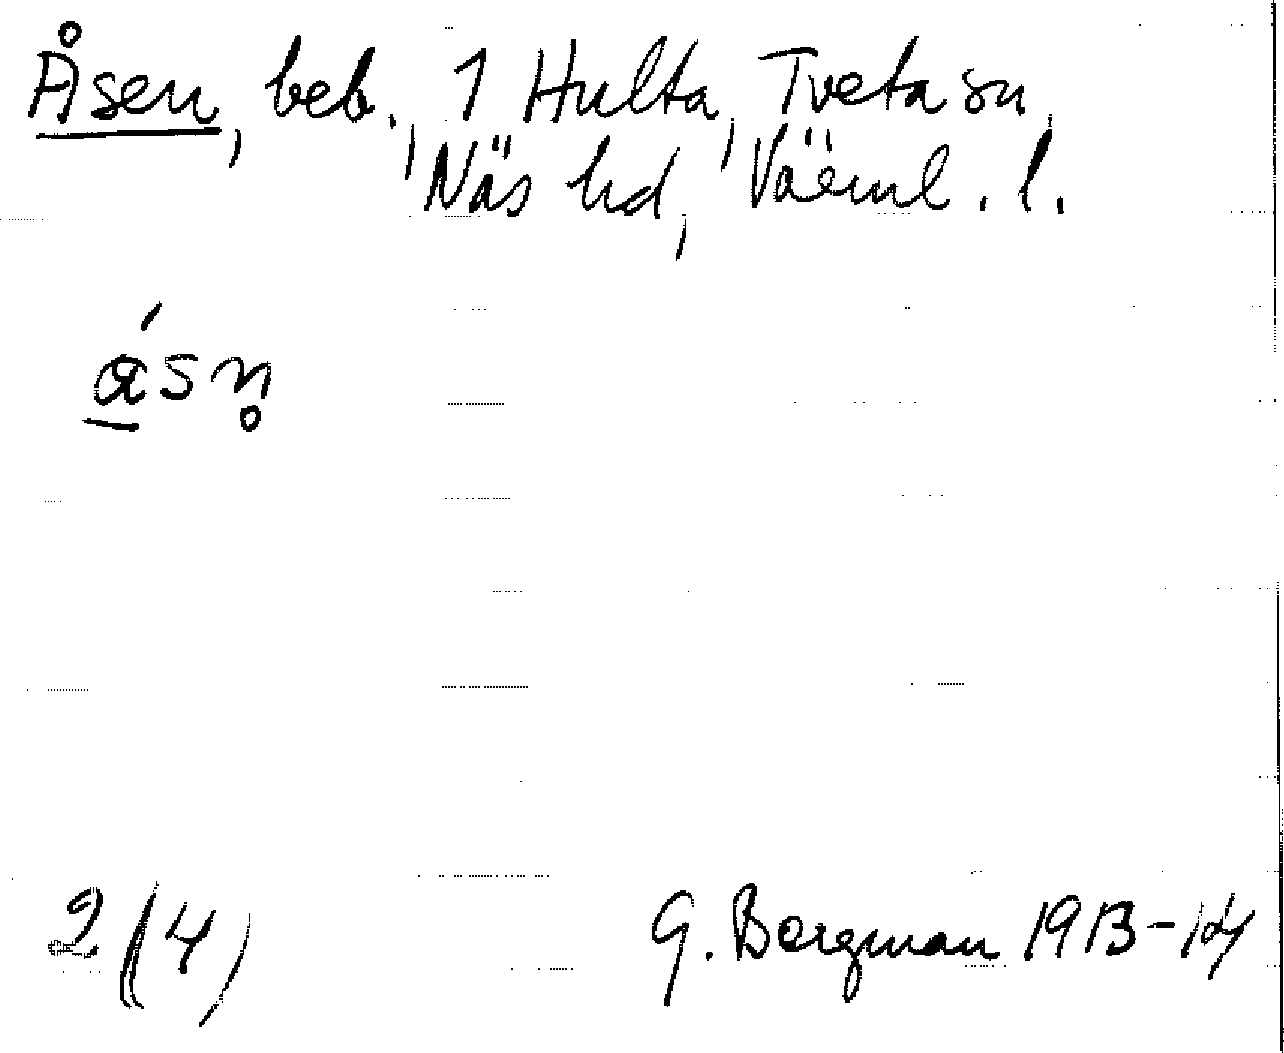 Åsen, beb., 1 Hulta, Tveta sn,
Näs hd, Värml. l.
a̱´sn̥
2 (4) G. Bergman 1913-14